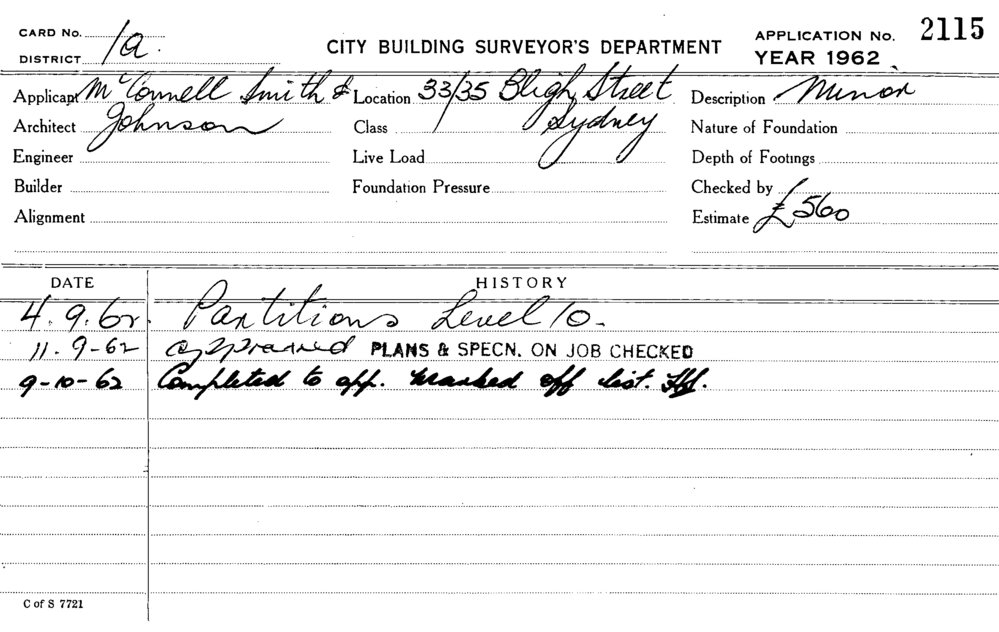 CARD No. 1a. CITY BUILDING SURVEYOR'S DEPARTMENT APPLICATION No. 2115
DISTRICT YEAR 1962
Applicant McConnell Smith & Location 33/35 Bligh Street Description Minor
Architect Johnson Class Sydney Nature of Foundation
Engineer Live Load Depth of Footings
Builder Foundation Pressure Checked by
Alignment Estimate £560
DATE HISTORY
4.9.62. Partitions Level 10.
11.9-62 approved PLANS & SPECN. ON JOB CHECKED
9-10-62 Completed to app. Marked off list.
C of S 7721